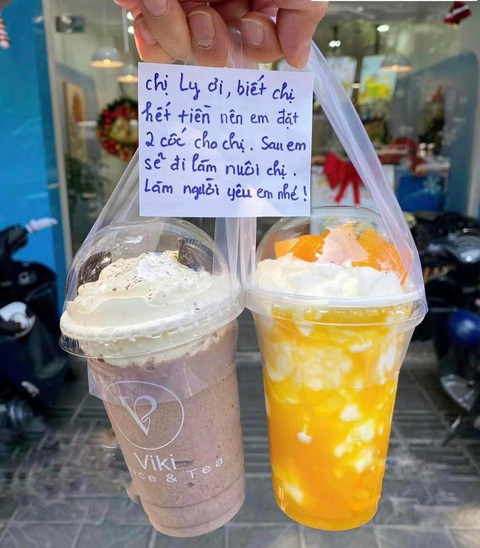 chị Ly ơi, biết chị
hết tiền nên em đặt
2 cốc cho chị. Sau em
sẽ đi làm nuôi chị.
Làm người yêu em nhé!
Viki
& Tea